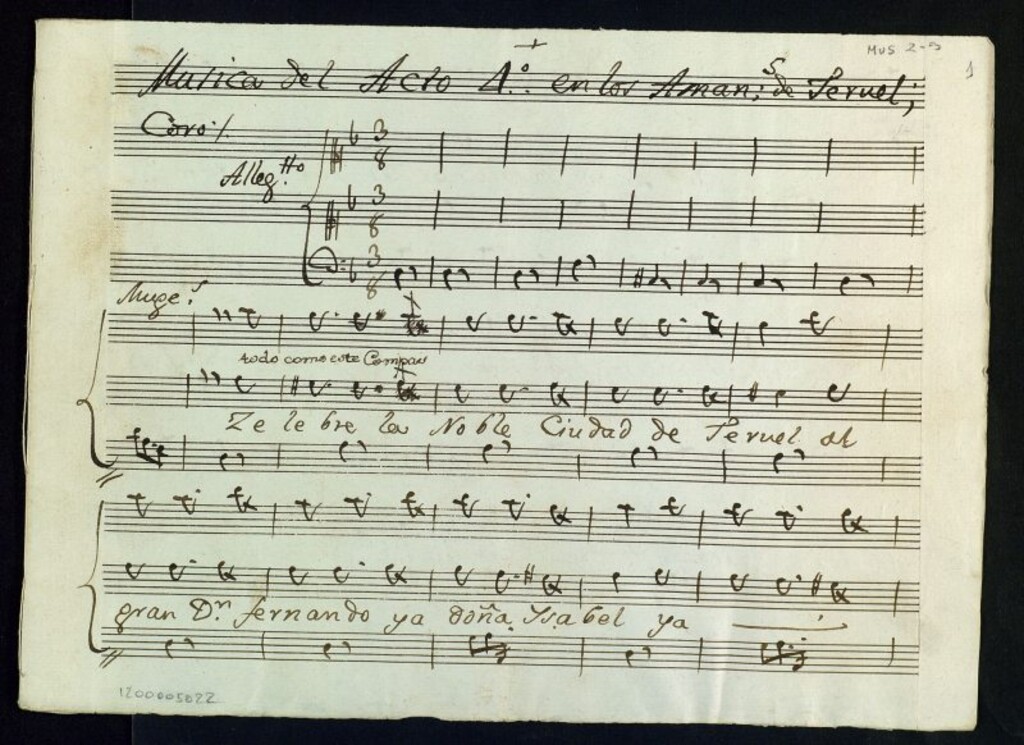 Mus 2-5
1
Musica del Acto 4º. en los Amans; de Teruel;
Coro
3 8
Alleg.tto
3 8
3 8
Muge.s
todo como este Compas
Ze le bre la Noble Ciudad de Teruel al
gran Dn. fernando ya doña Ysabel ya
1200005022